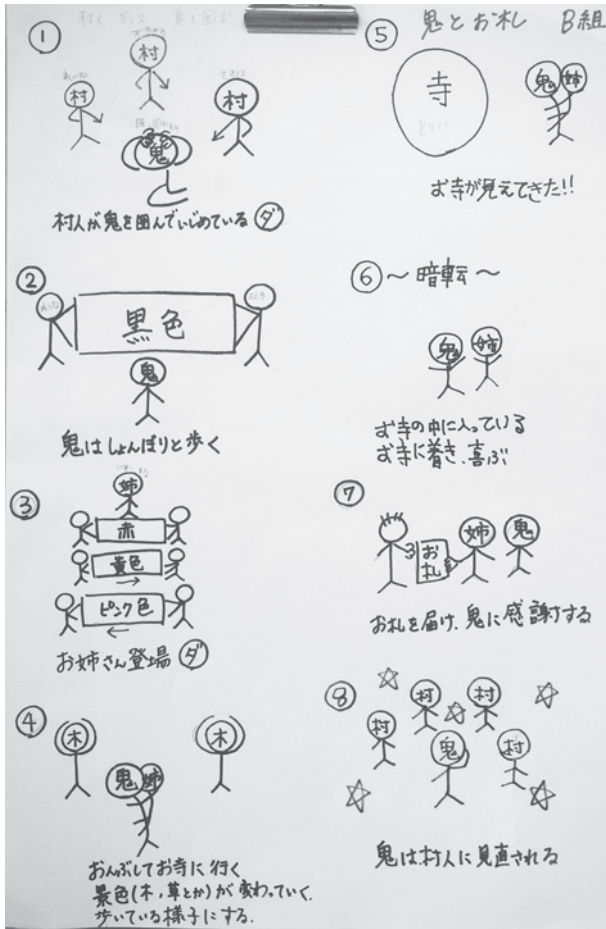 鬼とお札 B組
①
村
村
村
鬼
村人が鬼を囲んでいじめている ダ
②
黒色
鬼
鬼はしょんぼりと歩く
③
姉
赤
黄色
ピンク色
お姉さん登場 ダ
④
木
木
鬼
姉
おんぶしてお寺に行く
景色(木,草とか)が変わっていく.
歩いている様子にする.
⑤
寺
鬼
姉
お寺が見えてきた!!
⑥ ～暗転～
鬼
姉
お寺の中に入っている
お寺に着き、喜ぶ
⑦
お札
姉
鬼
お札を届け、鬼に感謝する
⑧
村
村
村
鬼
村
鬼は村人に見直される